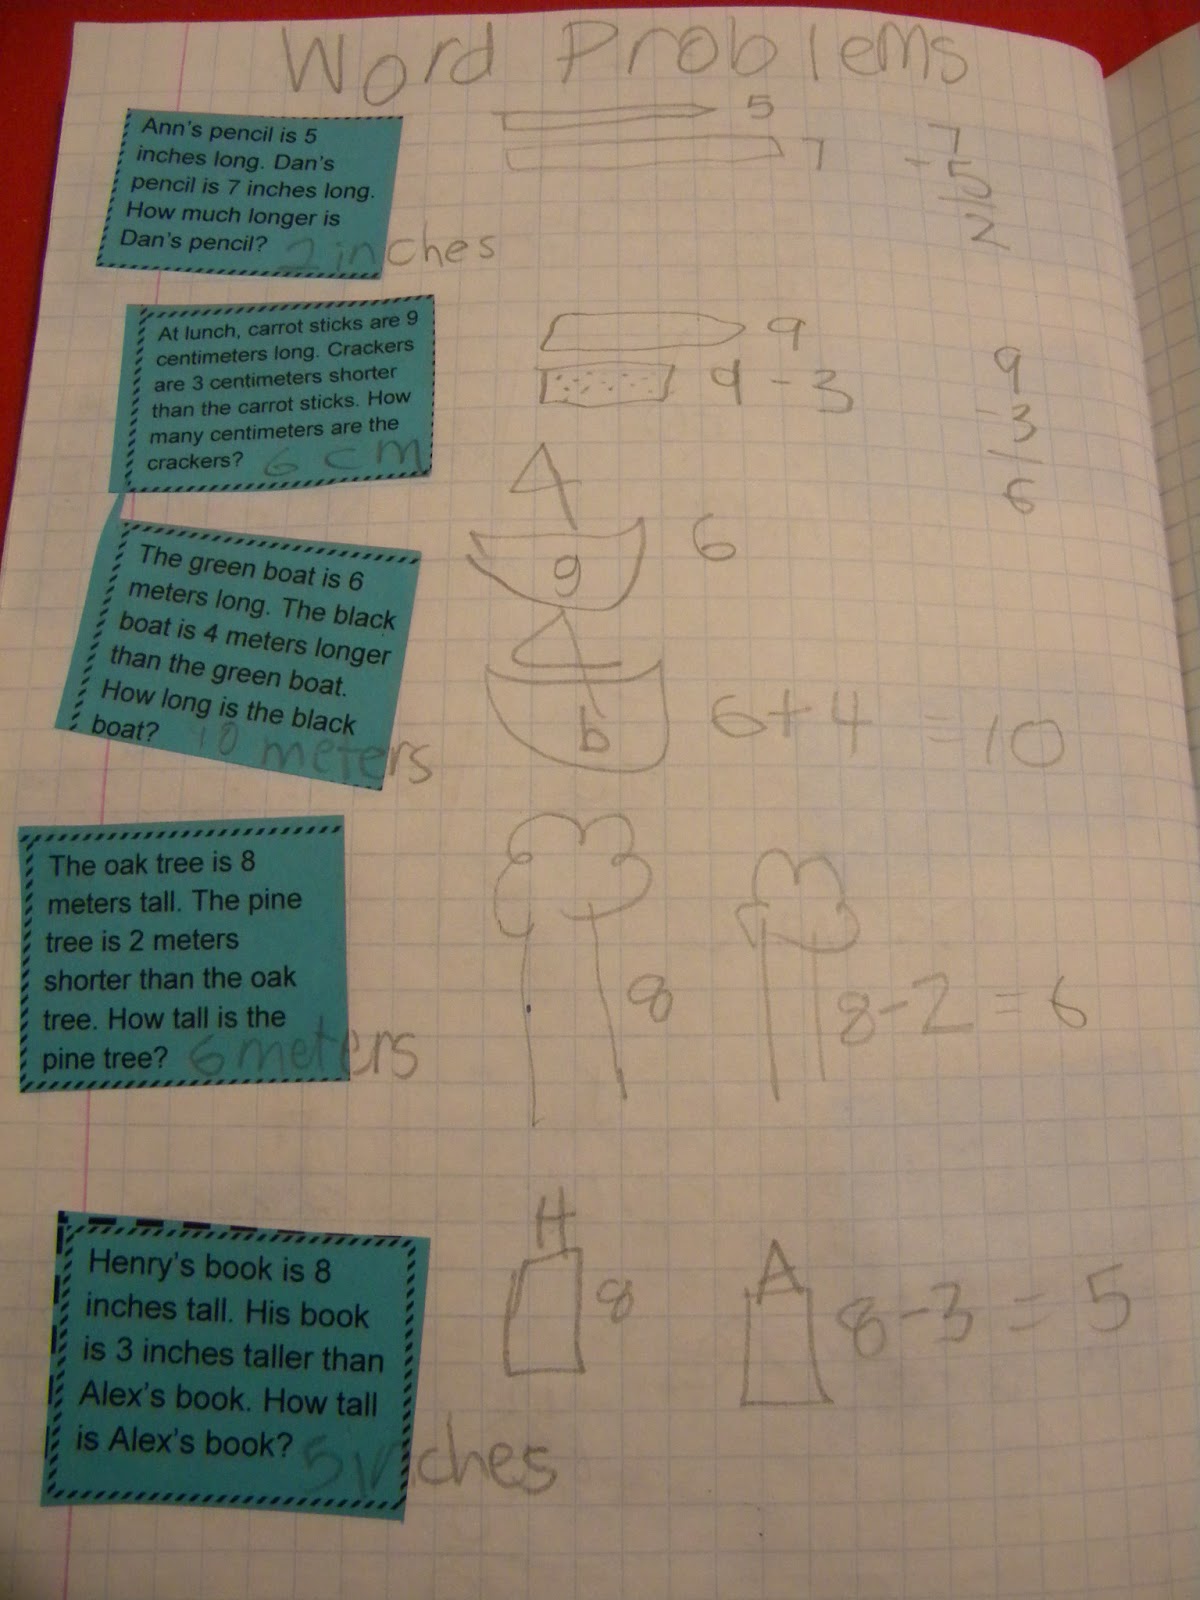 Word Problems
Ann's pencil is 5
inches long. Dan's
pencil is 7 inches long.
How much longer is
Dan's pencil? 2 inches
5
7
7
- 5
2
At lunch, carrot sticks are 9
centimeters long. Crackers
are 3 centimeters shorter
than the carrot sticks. How
many centimeters are the
crackers? 6 cm
9
9 - 3
9
- 3
6
The green boat is 6
meters long. The black
boat is 4 meters longer
than the green boat.
How long is the black
boat? 10 meters
g
6
b
6+4 = 10
The oak tree is 8
meters tall. The pine
tree is 2 meters
shorter than the oak
tree. How tall is the
pine tree? 6 meters
8
8-2 = 6
Henry's book is 8
inches tall. His book
is 3 inches taller than
Alex's book. How tall
is Alex's book?
5 inches
H
8
A
8-3 = 5